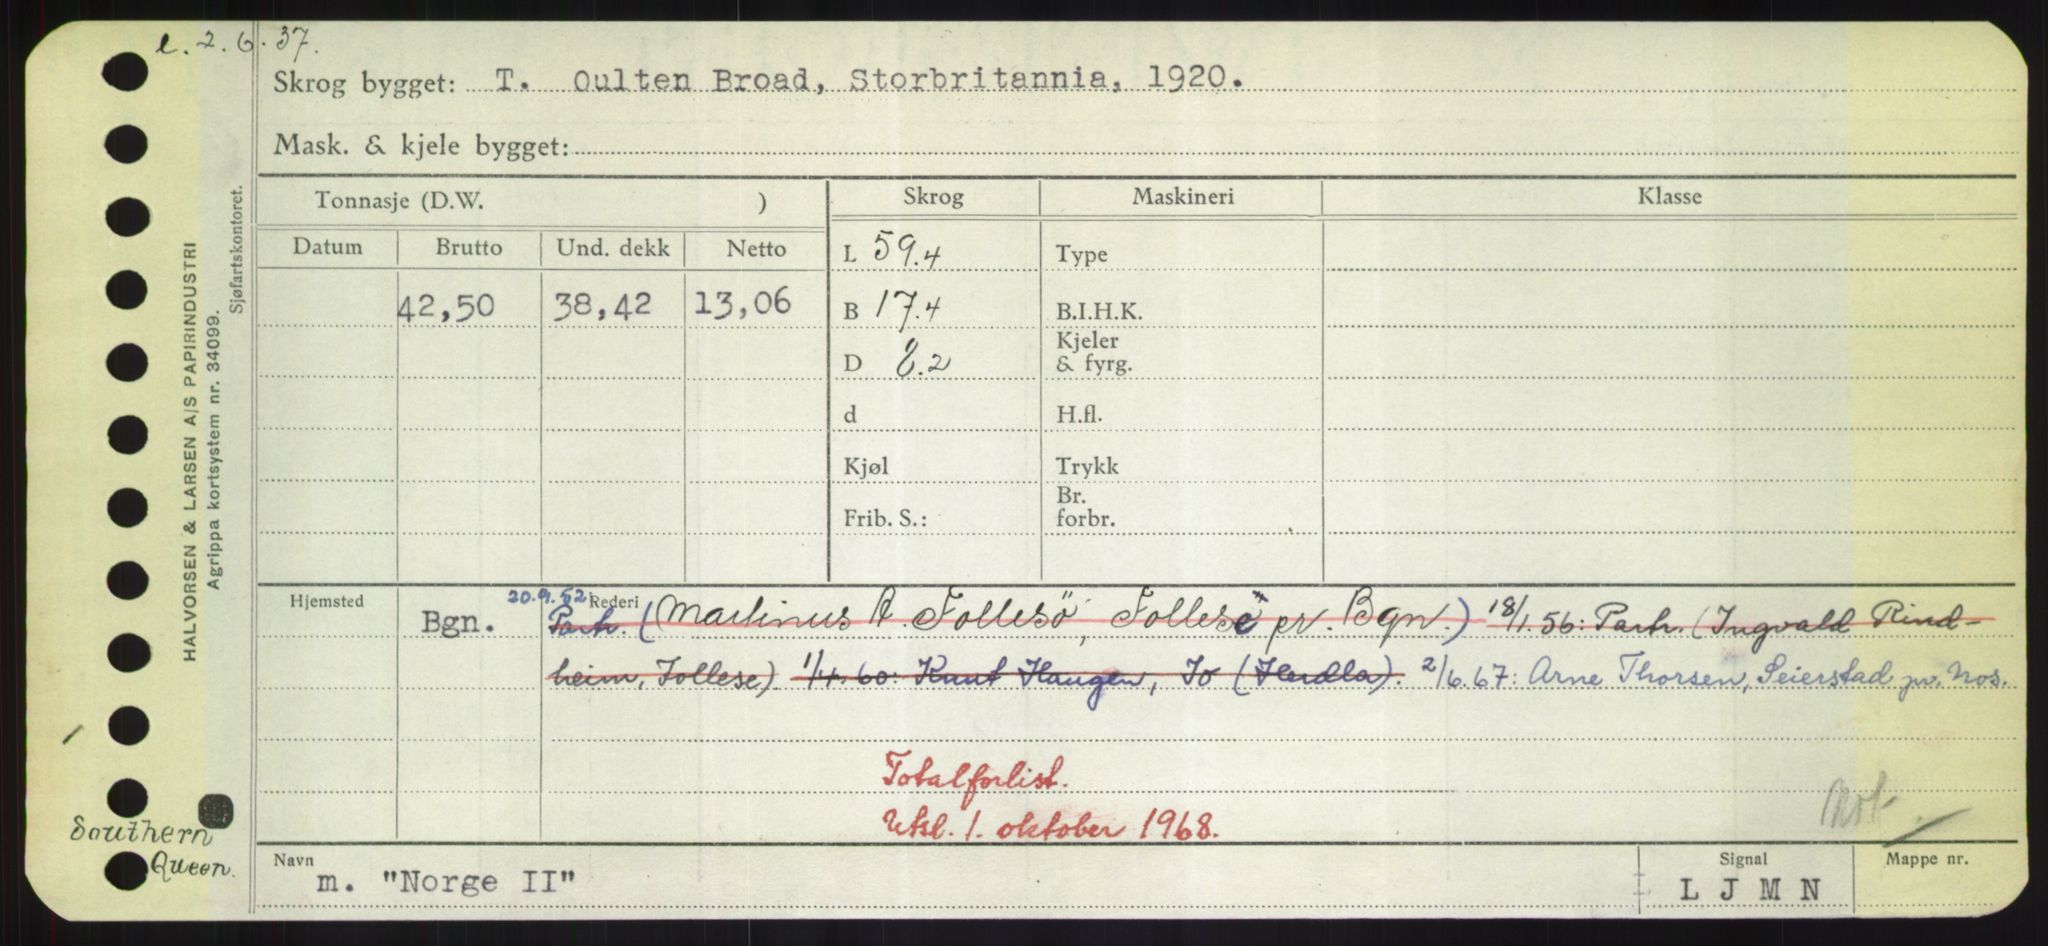 e. 2.6.37.
Skrog bygget: T. Oulten Broad, Storbritannia, 1920.
Mask. & kjele bygget:
HALVORSEN & LARSEN A/S PAPIRINDUSTRI
Agrippa kortsystem nr. 34099.
Sjøfartskontoret.
Tonnasje (D.W. )
Skrog
Maskineri
Klasse
Datum Brutto Und. dekk Netto
L 59.4
Type
42,50 38,42 13,06
B 17.4
B.I.H.K.
D 8.2
Kjeler
& fyrg.
d
H.fl.
Kjøl
Trykk
Frib. S.:
Br.
forbr.
Hjemsted
Bgn.
Rederi
20.9.52
Partr. (Martinus A. Follesö, Follese pr. Bgn.) 18/1.56: Partr. (Ingvald Rind-
heim, Follese) 1/4.60: Knut Haugen, Io (Herdla). 2/6.67: Arne Thorsen, Seierstad pr. Nos.
Totalforlist.
Utsl. 1. oktober 1968.
Mot.
Southern
Queen.
Navn
m. "Norge II"
Signal
L J M N
Mappe nr.